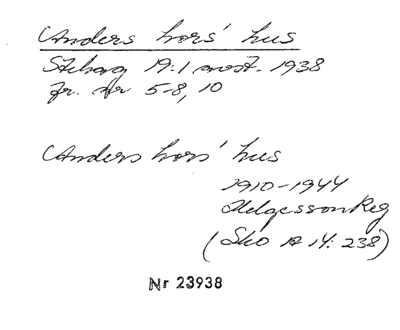 Anders Lors' hus
19:1 mot. 1938
fr. nr 5-8, 10
Anders Lors' hus
1910-1944
Helgesson Reg
(Sko A 14: 238)
Nr 23938